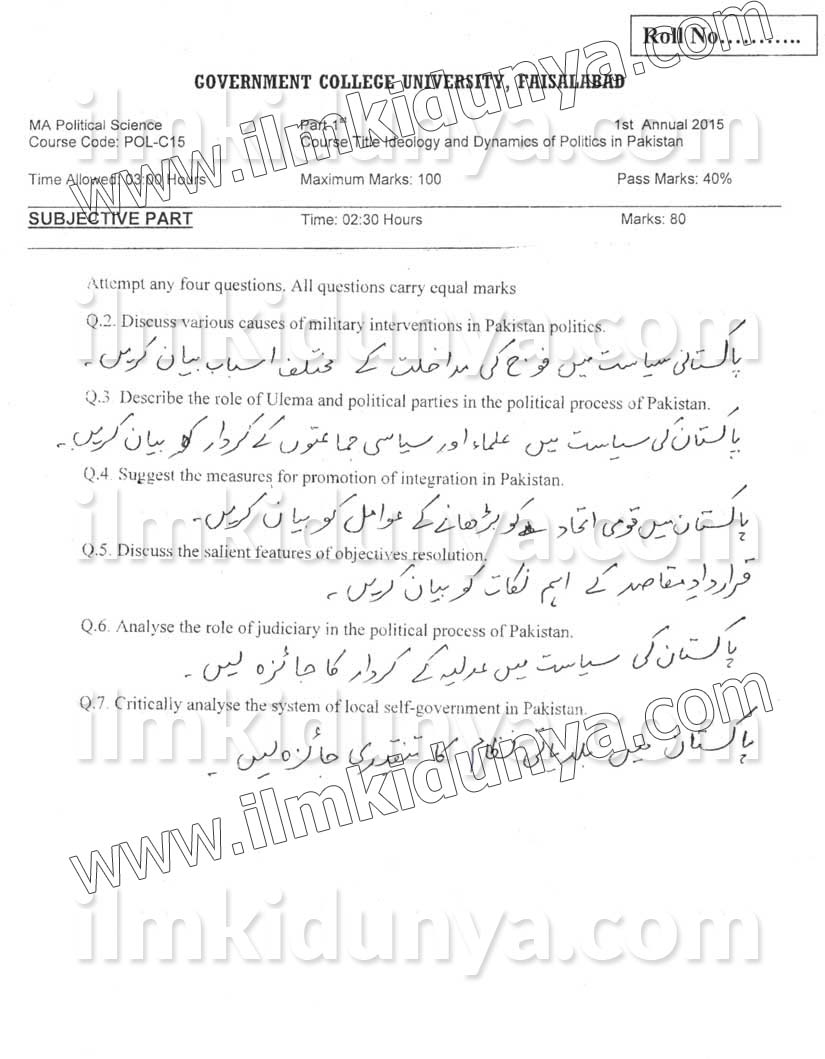 Roll No...........
GOVERNMENT COLLEGE UNIVERSITY, FAISALABAD
MA Political Science Part-1st 1st Annual 2015
Course Code: POL-C15 Course Title Ideology and Dynamics of Politics in Pakistan
Time Allowed: 03:00 Hours Maximum Marks: 100 Pass Marks: 40%
SUBJECTIVE PART Time: 02:30 Hours Marks: 80
Attempt any four questions. All questions carry equal marks
Q.2. Discuss various causes of military interventions in Pakistan politics.
پاکستانی سیاست میں فوج کی مداخلت کے مختلف اسباب بیان کریں۔
Q.3 Describe the role of Ulema and political parties in the political process of Pakistan.
پاکستان کی سیاست میں علماء اور سیاسی جماعتوں کے کردار کو بیان کریں۔
Q.4. Suggest the measures for promotion of integration in Pakistan.
پاکستان میں قومی اتحاد کو بڑھانے کے عوامل کو بیان کریں۔
Q.5. Discuss the salient features of objectives resolution.
قراردادِ مقاصد کے اہم نکات کو بیان کریں۔
Q.6. Analyse the role of judiciary in the political process of Pakistan.
پاکستان کی سیاست میں عدلیہ کے کردار کا جائزہ لیں۔
Q.7. Critically analyse the system of local self-government in Pakistan.
پاکستان میں بلدیاتی نظام کا تنقیدی جائزہ لیں۔
www.ilmkidunya.com
www.ilmkidunya.com
ilmkidunya.com
ilmkidunya.com
ilmkidunya.com
ilmkidunya.com
ilmkidunya.com